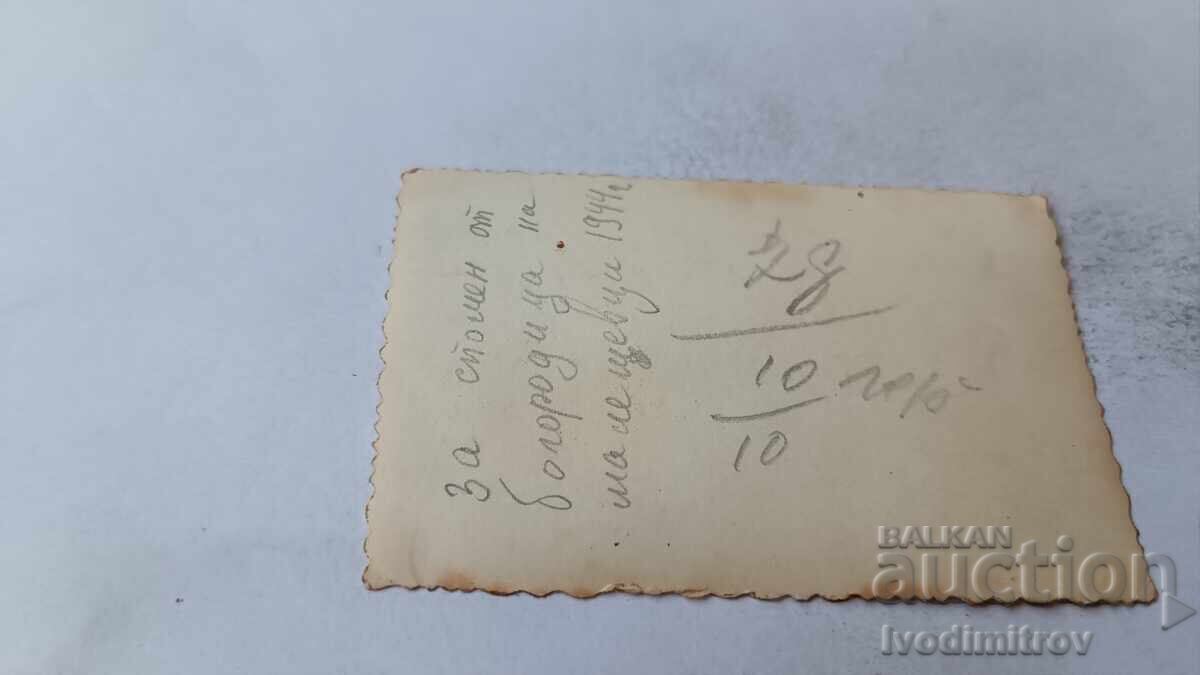 За спомен от
богородица на
малещевци 1944г
10
10
BALKAN
auction
Ivodimitrov